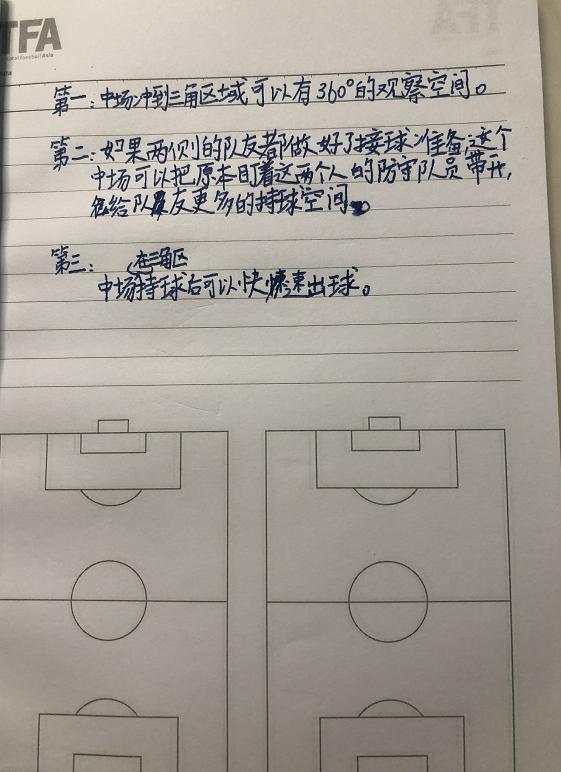 TFA
第一：中场冲到三角区域可以有360°的观察空间。
第二：如果两侧的队友都做好了接球准备，这个
中场可以把原本盯着这两个人的防守队员带开，
给队友更多的持球空间。
第三：
在三角区
中场持球后可以快速出球。